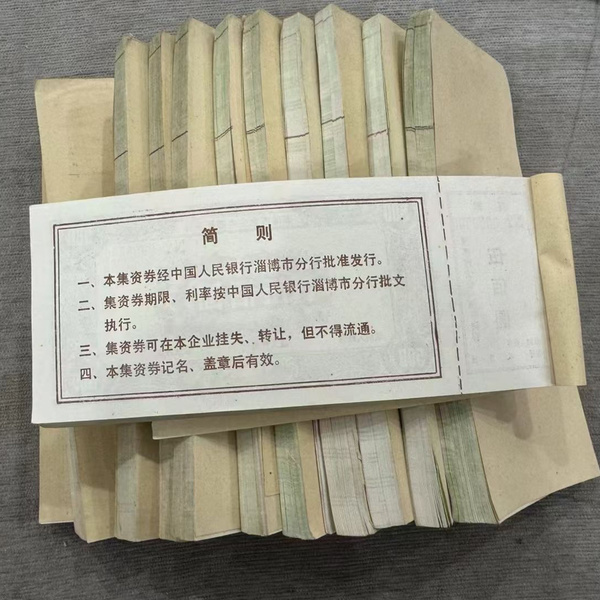 简 则
一、本集资券经中国人民银行淄博市分行批准发行。
二、集资券期限、利率按中国人民银行淄博市分行批文
执行。
三、集资券可在本企业挂失、转让,但不得流通。
四、本集资券记名、盖章后有效。